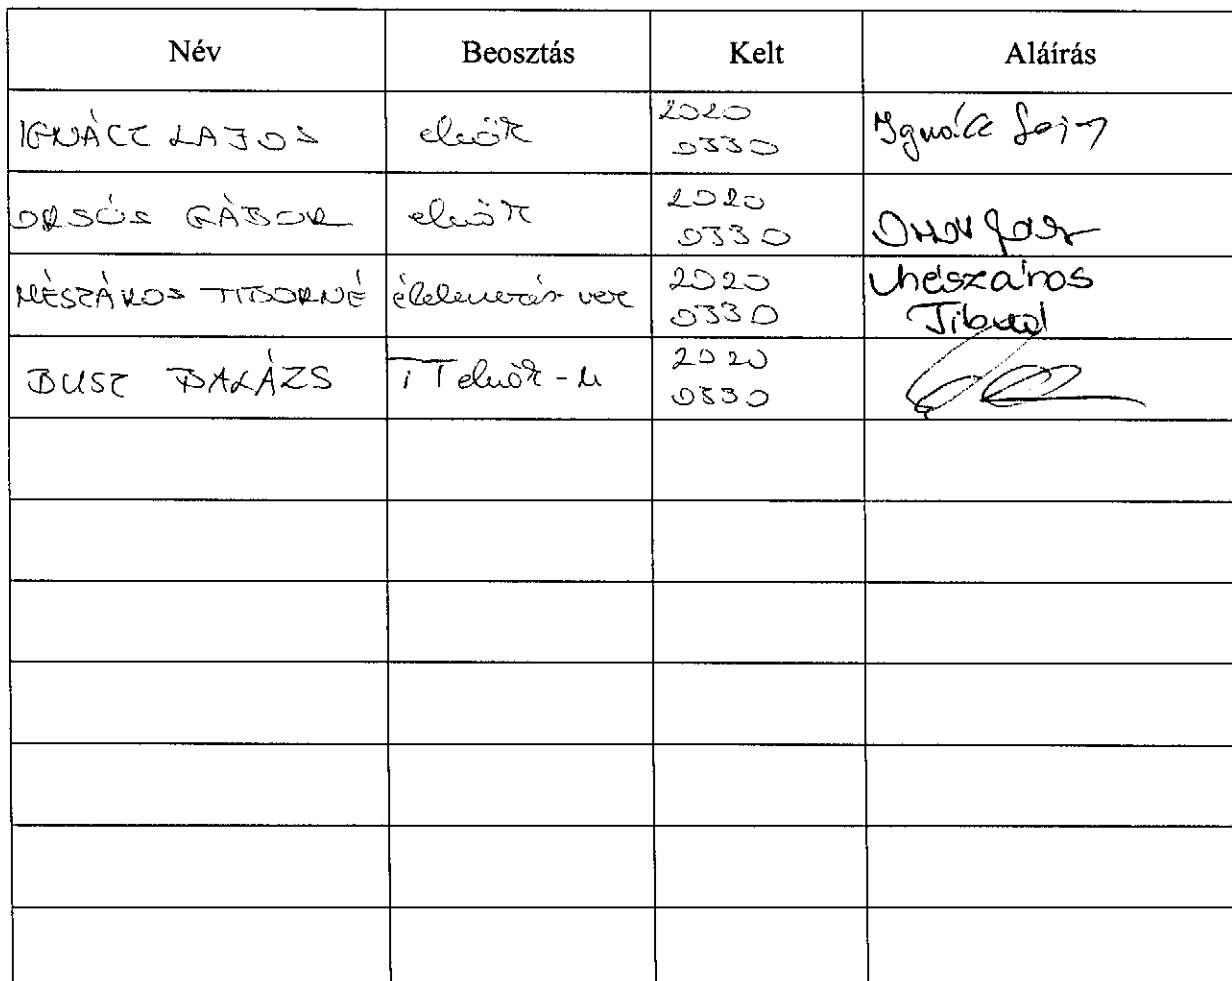 Név Beosztás Kelt Aláírás
IGNÁCZ LAJOS elnök 2020 Ignácz Lajos
0330
ORSÓS GÁBOR elnök 2020
0330
MÉSZÁROS TIBORNÉ élelmezés vez 2020 Mészáros
0330 Tiborné
BUSZ BALÁZS IT elnök - h 2020
0330